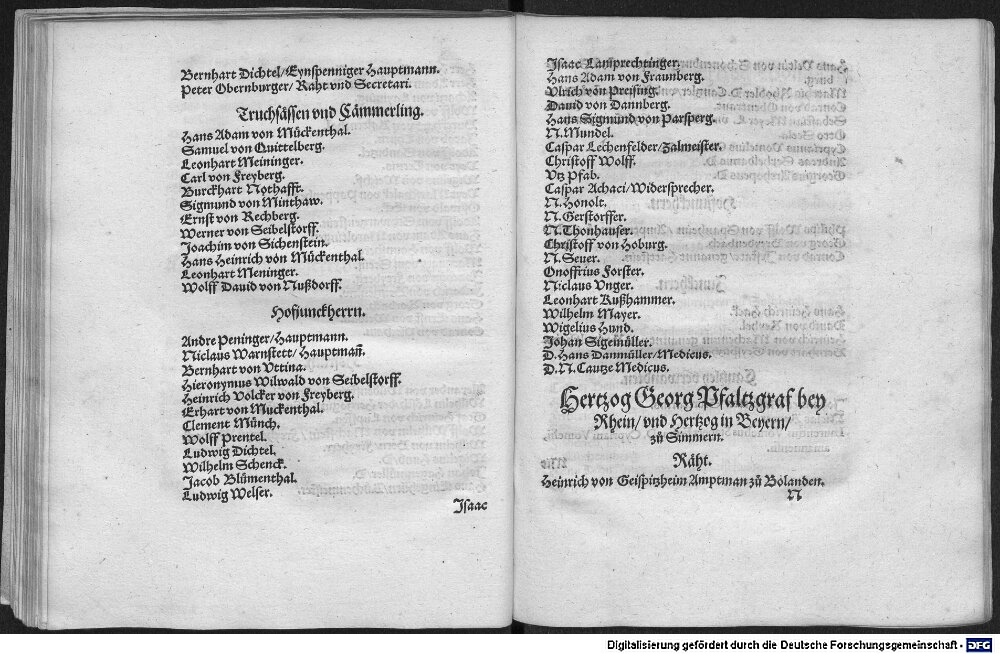 Bernhart Dichtel/Eynspenniger Hauptmann.
Peter Obernburger/ Raht vnd Secretari.
Truchsässen vnd Cämmerling.
Hans Adam von Mückenthal.
Samuel von Quittelberg.
Leonhart Meininger.
Carl von Freyberg.
Burckhart Nothafft.
Sigmund von Minthaw.
Ernst von Rechberg.
Werner von Seibelstorff.
Joachim von Sichenstein.
Hans Heinrich von Mückenthal.
Leonhart Meninger.
Wolff Dauid von Nußdorff.
Hofiunckherrn.
Andre Peninger/Hauptmann.
Niclaus Warnstett/ Hauptmañ.
Bernhart von Vttina.
Hieronymus Wilwald von Seibelstorff.
Heinrich Volcker von Freyberg.
Erhart von Muckenthal.
Clement Münch.
Wolff Prentel.
Ludwig Dichtel.
Wilhelm Schenck.
Jacob Blümenthal.
Ludwig Welser.
Isaac
Isaac Lamprechtinger.
Hans Adam von Fraunberg.
Vlrich von Preising.
Dauid von Dannberg.
Hans Sigmund von Parsperg.
N. Mundel.
Caspar Lechenfelder/Zalmeister.
Christoff Wolff.
Vtz Pfab.
Caspar Achaci/Widersprecher.
N. Honolt.
N. Gerstorffer.
N. Thonhauser.
Christoff von Hoburg.
N. Seuer.
Onoffrius Forster.
Niclaus Vnger.
Leonhart Kußhammer.
Wilhelm Mayer.
Wigelius Hund.
Johan Sigemüller.
D. Hans Danmüller/Medicus.
D. N. Cautze Medicus.
Hertzog Georg Pfaltzgraf bey
Rhein/ vnd Hertzog in Beyern/
zů Simmern.
Räht.
Heinrich von Geispitzheim Amptman zů Bolanden.
N
Digitalisierung gefördert durch die Deutsche Forschungsgemeinschaft - DFG